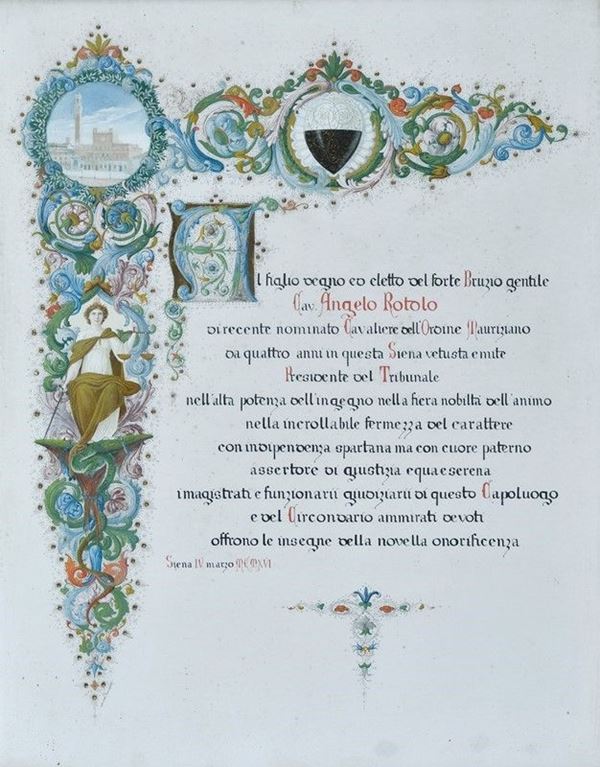 Al figlio degno ed eletto del forte Bruzio gentile
Cav. Angelo Rotolo
di recente nominato Cavaliere dell'Ordine Mauriziano
da quattro anni in questa Siena vetusta e mite
Presidente del Tribunale
nell'alta potenza dell'ingegno nella fiera nobiltà dell'animo
nella incrollabile fermezza del carattere
con indipendenza spartana ma con cuore paterno
assertore di giustizia equa e serena
i magistrati e funzionarii giudiziarii di questo Capoluogo
e del Circondario ammirati devoti
offrono le insegne della novella onorificenza
Siena IV marzo MCMXVI